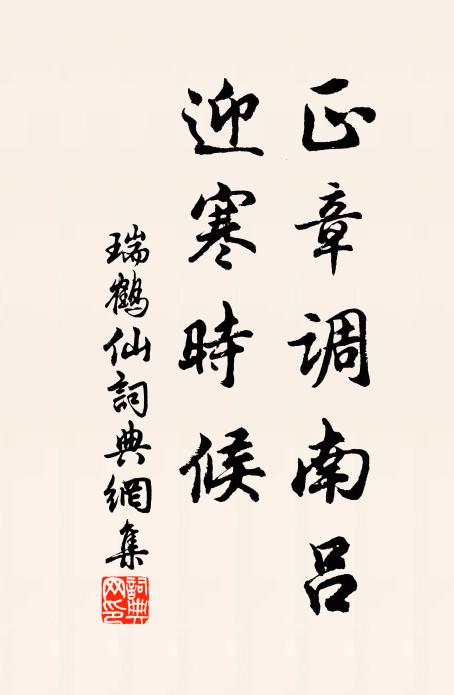 正章調南呂
迎寒時候
瑞鶴仙詞典網集
詞典網印